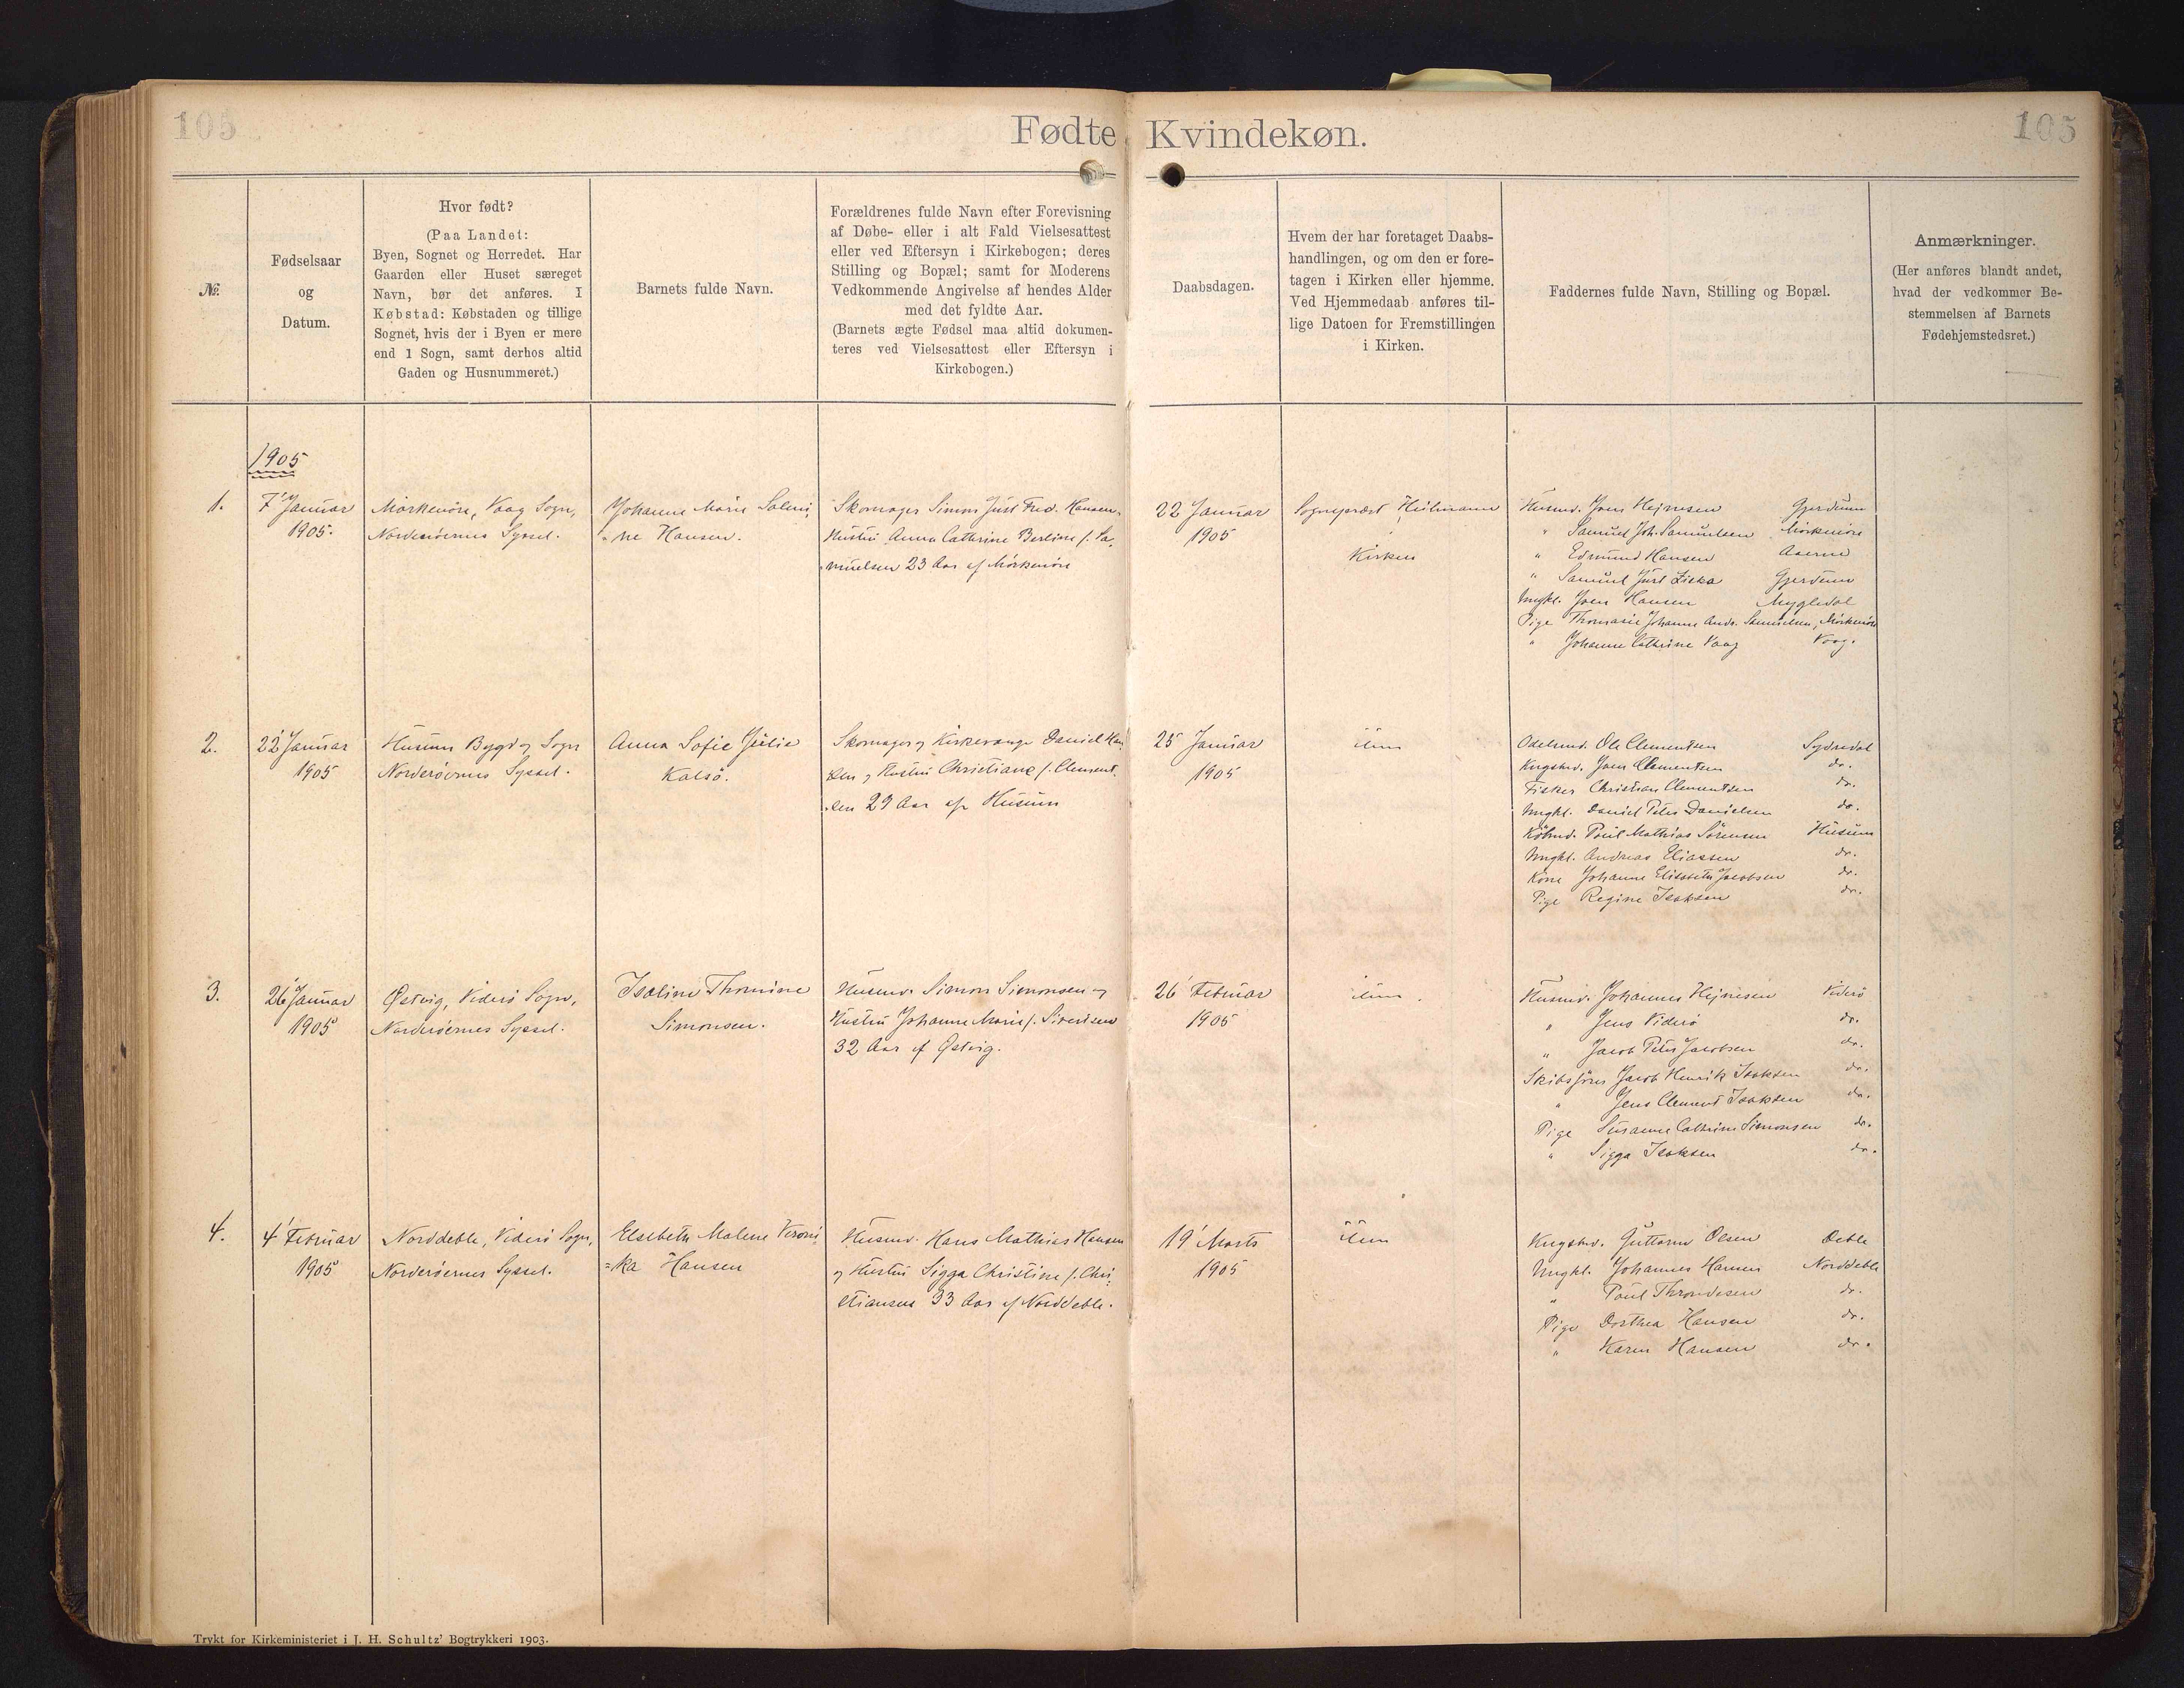 105
Fødte Kvindekøn.
105
№.
Fødselsaar
og
Datum.
Hvor født?
(Paa Landet:
Byen, Sognet og Herredet. Har
Gaarden eller Huset særeget
Navn, bør det anføres. I
Købstad: Købstaden og tillige
Sognet, hvis der i Byen er mere
end 1 Sogn, samt derhos altid
Gaden og Husnummeret.)
Barnets fulde Navn.
Forældrenes fulde Navn efter Forevisning
af Døbe- eller i alt Fald Vielsesattest
eller ved Eftersyn i Kirkebogen; deres
Stilling og Bopæl; samt for Moderens
Vedkommende Angivelse af hendes Alder
med det fyldte Aar.
(Barnets ægte Fødsel maa altid dokumen-
teres ved Vielsesattest eller Eftersyn i
Kirkebogen.)
Daabsdagen.
Hvem der har foretaget Daabs-
handlingen, og om den er fore-
tagen i Kirken eller hjemme.
Ved Hjemmedaab anføres til-
lige Datoen for Fremstillingen
i Kirken.
Faddernes fulde Navn, Stilling og Bopæl.
Anmærkninger.
(Her anføres blandt andet,
hvad der vedkommer Be-
stemmelsen af Barnets
Fødehjemstedsret.)
1905
1.
7' Januar
1905.
Mörkenöre, Vaag Sogn,
Norderöernes Syssel.
Johanne Marie Salmi-
ne Hansen.
Skomager Simon Just Fred. Hansen
Hustru Anna Cathrine Berline f. Sa-
muelsen 23 Aar af Mörkenöre
22' Januar
1905
Sognepræst Heilmann
Kirken
Husmd. Joen Hejnesen Gjerdum
" Samuel Joh. Samuelsen Mörkenöre
" Edmund Hansen
" Samuel Just Ziska Gjerdum
Ungkl. Joen Hansen Mygledal
Pige Thomasia Johanne Andr. Samuelsen, Mörkenöre
" Johanne Cathrine Vaag Vaag.
2.
22' Januar
1905
Husum Bygd og Sogn
Norderöernes Syssel.
Anna Sofie Julie
Kalsö.
Skomager og Kirkesanger Daniel Han
sen og Hustru Christiane f. Clement-
sen 29 Aar af Husum
25' Januar
1905
item
Odelsmd. Ole Clementsen Sydredal
Kngsbd. Joen Clementsen do.
Fisker Christian Clementsen do.
Ungkl. Daniel Peter Danielsen do.
Köbmd. Poul Mathias Sörensen Husum
Ungkl. Andreas Eliassen do.
Kone Johanne Elisabeth Jacobsen do.
Pige Regine Isaksen do.
3.
26' Januar
1905
Østvig, Viderö Sogn,
Norderöernes Syssel.
Isaline Thomine
Simonsen.
Husmd. Simon Simonsen og
Hustru Johanne Marie f. Sivertsen
32 Aar af Østvig.
26' Februar
1905
item.
Husmd. Johannes Hejnesen Viderö
" Jens Viderö do.
" Jacob Peter Jacobsen do.
Skibsförer Jacob Henrik Isaksen do.
" Jens Clement Isaksen do.
Pige Susanne Cathrine Simonsen do.
" Sigga Isaksen do.
4.
4' Februar
1905
Norddeble, Viderö Sogn,
Norderöernes Syssel.
Elsebeth Malene Veroni-
=ka Hansen
Husmd. Hans Mathias Hansen
og Hustru Sigga Christine f. Chri-
stiansen 33 Aar af Norddeble.
19' Marts
1905
item
Kngsbd. Guttorm Olsen Deble
Ungkl. Johannes Hansen Norddeble
" Poul Throndesen do.
Pige Dorthea Hansen do.
" Karen Hansen do.
Trykt for Kirkeministeriet i J. H. Schultz' Bogtrykkeri 1903.